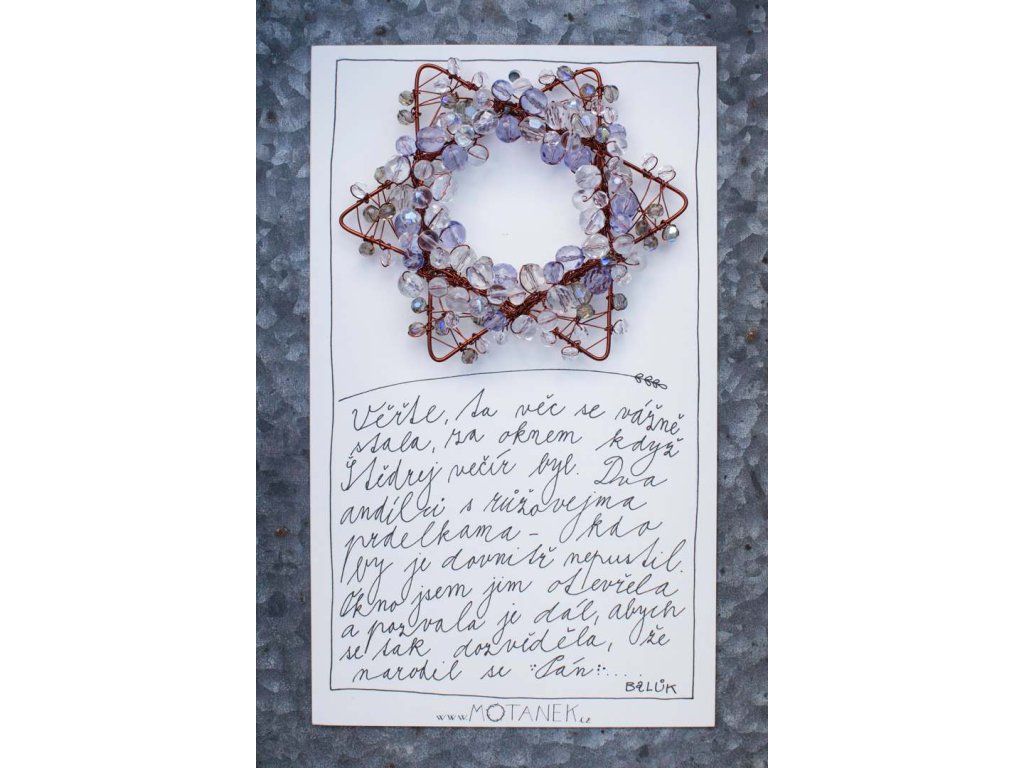 Věřte, ta věc se vážně
stala, za oknem když
Štědrej večír byl. Dva
andílci s růžovejma
prdelkama - kdo
by je dovnitř nepustil.
Okno jsem jim otevřela
a pozvala je dál, abych
se tak dozvěděla, že
narodil se Pán.....
BALŮK
www.MOTANEK.cz